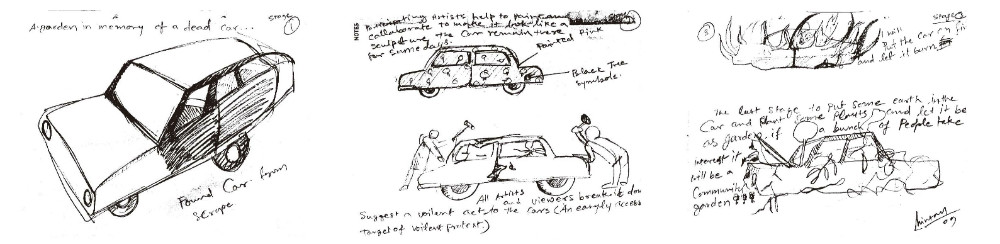 stage 1
A garden in memory of a dead car...
Found Car from
Scrape
NOTES
Participating Artists help to paint and
collaborate to make it look like a
sculpture the car remain there
for some days.
Painted Pink
Black Tree
symbols.
All Artists
and viewers break it down
Suggest a voilent act to the cars (An eargly access
target of voilent protest.)
stage
3
I will
Put the car on in
and let it burn
The last stage to put some earth in the
Car and plant some plants and let it be
as garden if a bunch of People take
interest it
will be a
Community
garden ???
09